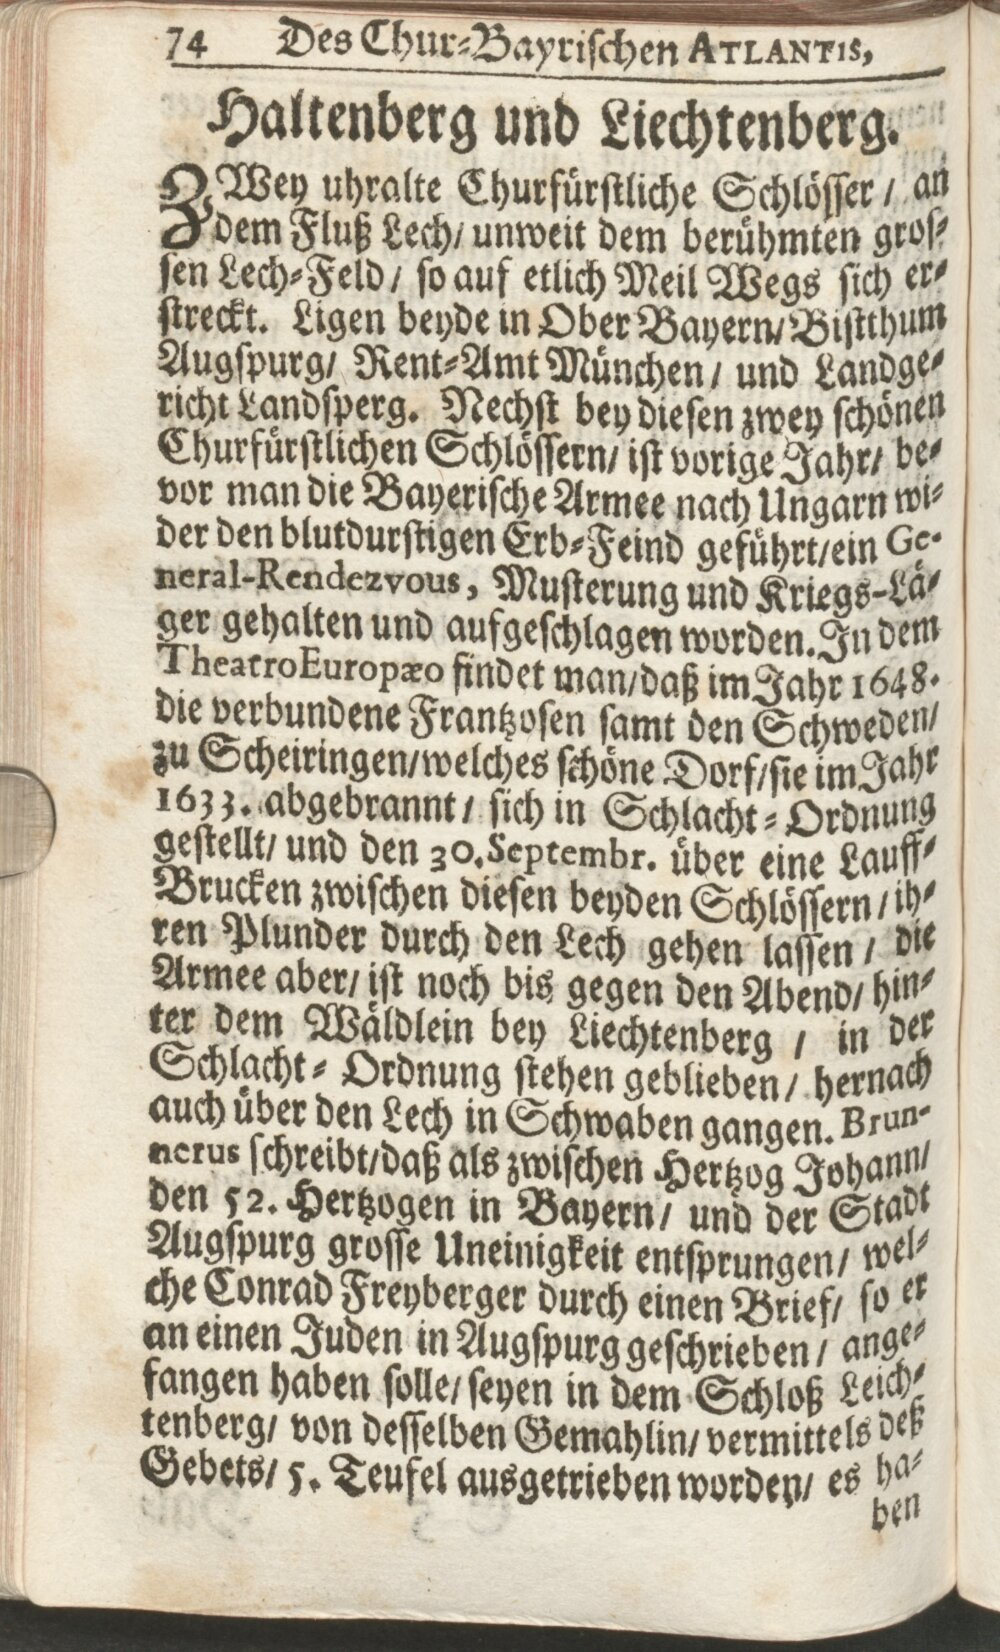 74 Des Chur-Bayrischen ATLANTIS,
Haltenberg und Liechtenberg.
ZWey uhralte Churfürstliche Schlösser / an
dem Fluß Lech / unweit dem berühmten gros-
sen Lech-Feld / so auf etlich Meil Wegs sich er-
streckt. Ligen beyde in Ober Bayern / Bistthum
Augspurg / Rent-Amt München / und Landge-
richt Landsperg. Nechst bey diesen zwey schönen
Churfürstlichen Schlössern / ist vorige Jahr / be-
vor man die Bayerische Armee nach Ungarn wi-
der den blutdurstigen Erb-Feind geführt / ein Ge-
neral-Rendezvous, Musterung und Kriegs-Lä-
ger gehalten und aufgeschlagen worden. In dem
Theatro Europæo findet man / daß im Jahr 1648.
die verbundene Frantzosen samt den Schweden /
zu Scheiringen / welches schöne Dorf / sie im Jahr
1633. abgebrannt / sich in Schlacht-Ordnung
gestellt / und den 30. Septembr. über eine Lauff-
Brucken zwischen diesen beyden Schlössern / ih-
ren Plunder durch den Lech gehen lassen / die
Armee aber / ist noch bis gegen den Abend / hin-
ter dem Wäldlein bey Liechtenberg / in der
Schlacht-Ordnung stehen geblieben / hernach
auch über den Lech in Schwaben gangen. Brun-
nerus schreibt / daß als zwischen Hertzog Johann /
den 52. Hertzogen in Bayern / und der Stadt
Augspurg grosse Uneinigkeit entsprungen / wel-
che Conrad Freyberger durch einen Brief / so er
an einen Juden in Augspurg geschrieben / ange-
fangen haben solle / seyen in dem Schloß Leich-
tenberg / von desselben Gemahlin / vermittels deß
Gebets / 5. Teufel ausgetrieben worden / es ha-
ben